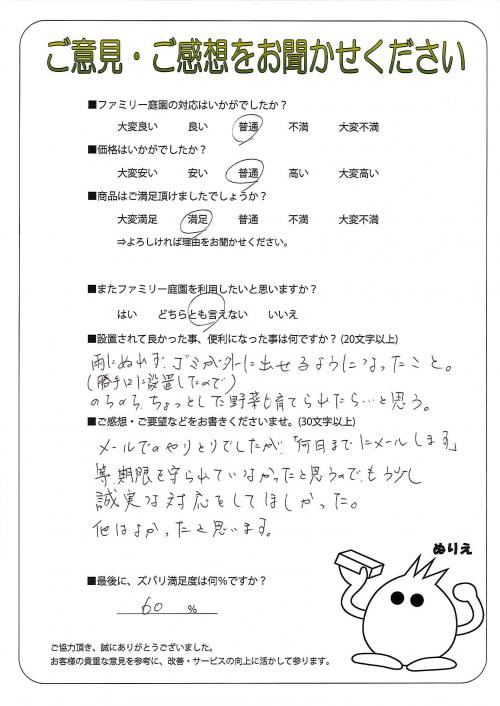 ご意見・ご感想をお聞かせください
■ファミリー庭園の対応はいかがでしたか？
大変良い 良い 普通 不満 大変不満
■価格はいかがでしたか？
大変安い 安い 普通 高い 大変高い
■商品はご満足頂けましたでしょうか？
大変満足 満足 普通 不満 大変不満
⇒よろしければ理由をお聞かせください。
■またファミリー庭園を利用したいと思いますか？
はい どちらとも言えない いいえ
■設置されて良かった事、便利になった事は何ですか？(20文字以上)
雨にぬれず、ゴミが外に出せるようになったこと。
(勝手口に設置したので)
のちのち、ちょっとした野菜も育てられたら…と思う。
■ご感想・ご要望などをお書きくださいませ。(30文字以上)
メールでのやりとりでしたが、「何日までにメールします」
等、期限を守られていなかったと思うので、もう少し
誠実な対応をしてほしかった。
他はよかったと思います。
ぬりえ
■最後に、ズバリ満足度は何％ですか？
60 ％
ご協力頂き、誠にありがとうございました。
お客様の貴重な意見を参考に、改善・サービスの向上に活かして参ります。